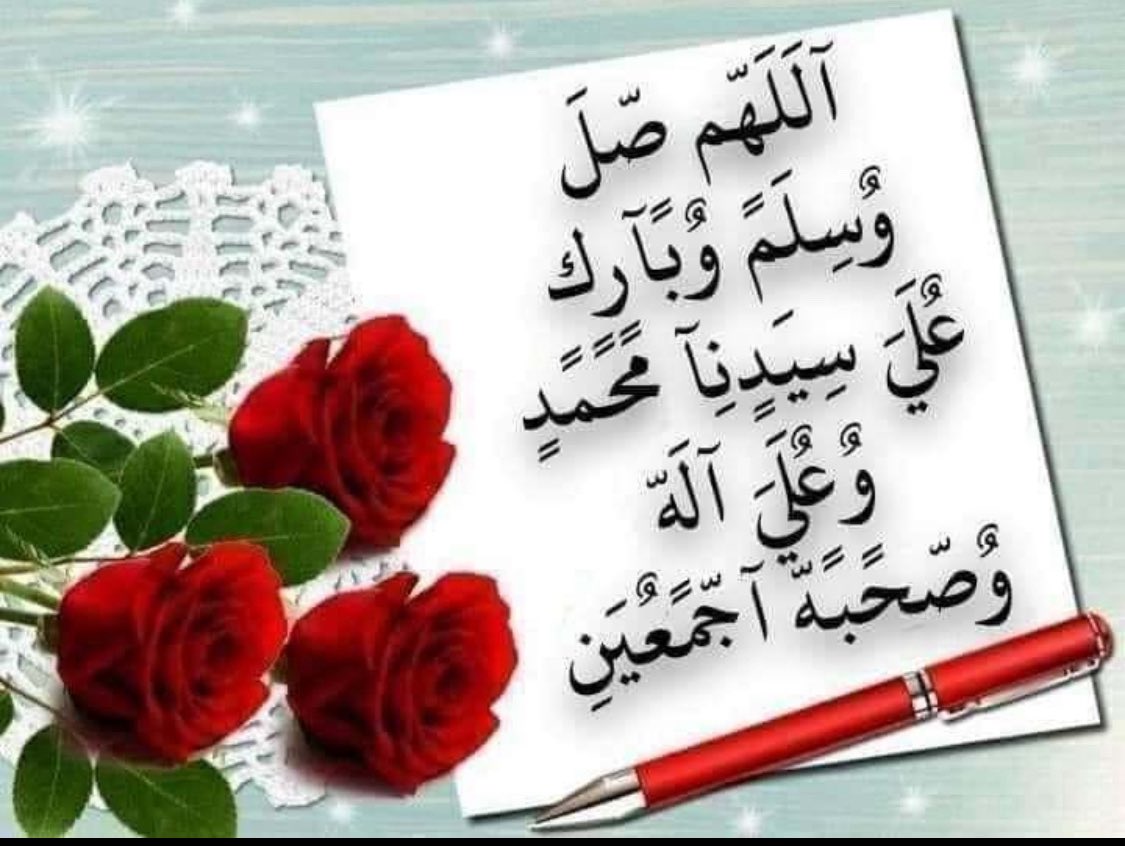 آلَلَهّم صّلَ
وُسِلَمً وُبًآرك
عُلَيَ سِيَدٍنِآ مًحًمًدٍ
وُعُلَيَ آلَهّ
وُصّحًبًهّ آجّمًعُيَنِ